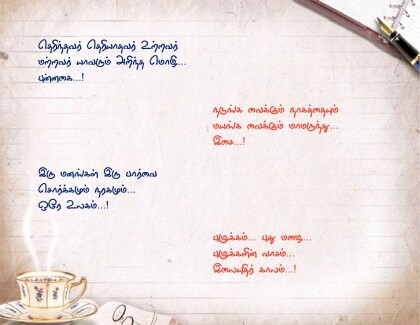 தெரிந்தவர் தெரியாதவர் உற்றவர்
மற்றவர் யாவரும் அறிந்த மொழி...
புன்னகை...!
நடுங்க வைக்கும் நாகத்தையும்
மயங்க வைக்கும் மாமருந்து...
இசை...!
இரு மனங்கள் இரு பார்வை
சொர்க்கமும் நரகமும்...
ஒரே உலகம்...!
புழுக்கம்... புது மழை...
புழுக்களின் வாசம்...
இலையுதிர் காலம்...!